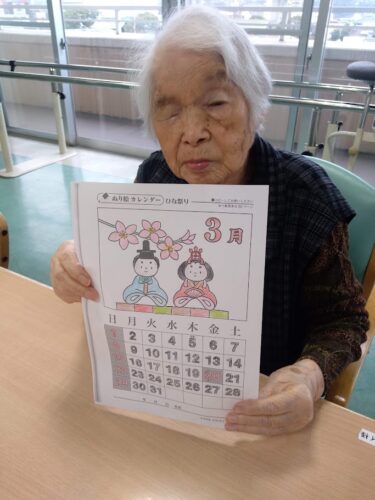 ぬり絵 カレンダー ひな祭り
3月
日 月 火 水 木 金 土
1 2 3 4 5 6 7
8 9 10 11 12 13 14
15 16 17 18 19 20 21
22 23 24 25 26 27 28
29 30 31